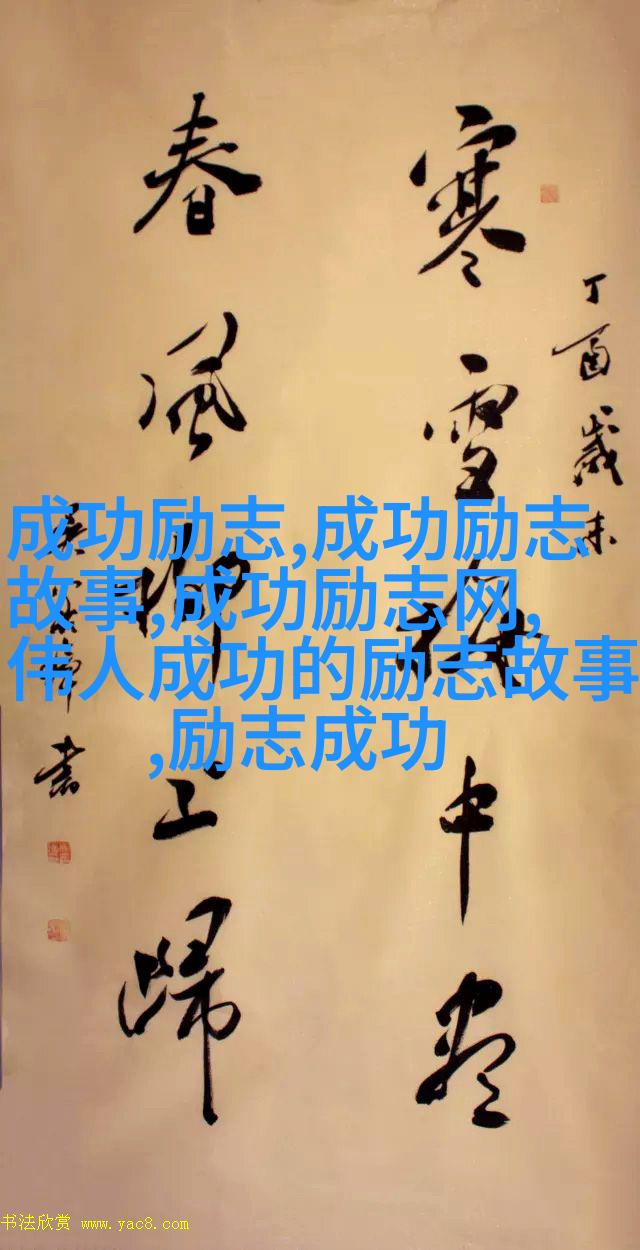 寒雪梅中尽
春风柳上归
丁酉岁末
书
成功励志,成功励志
故事,成功励志网,
伟人成功的励志故事
,励志成功
书法欣赏 www.yac8.com